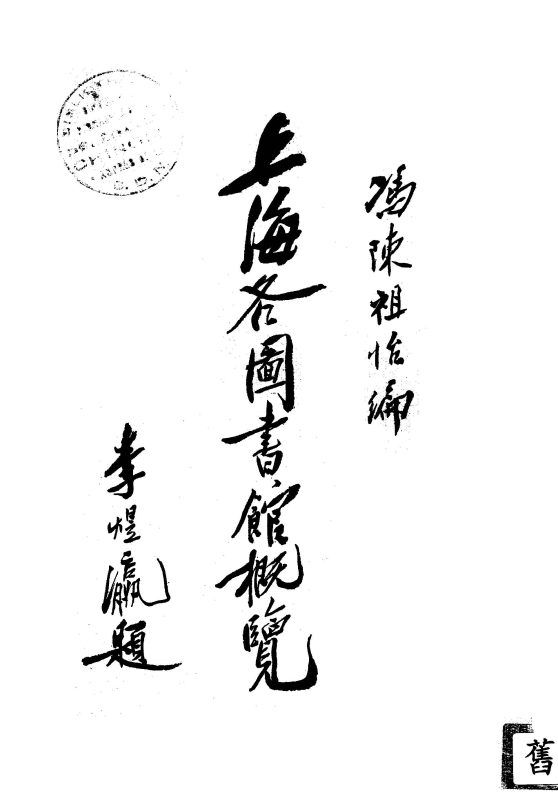 馮陳祖怡編
上海各圖書館概覽
李煜瀛題
舊